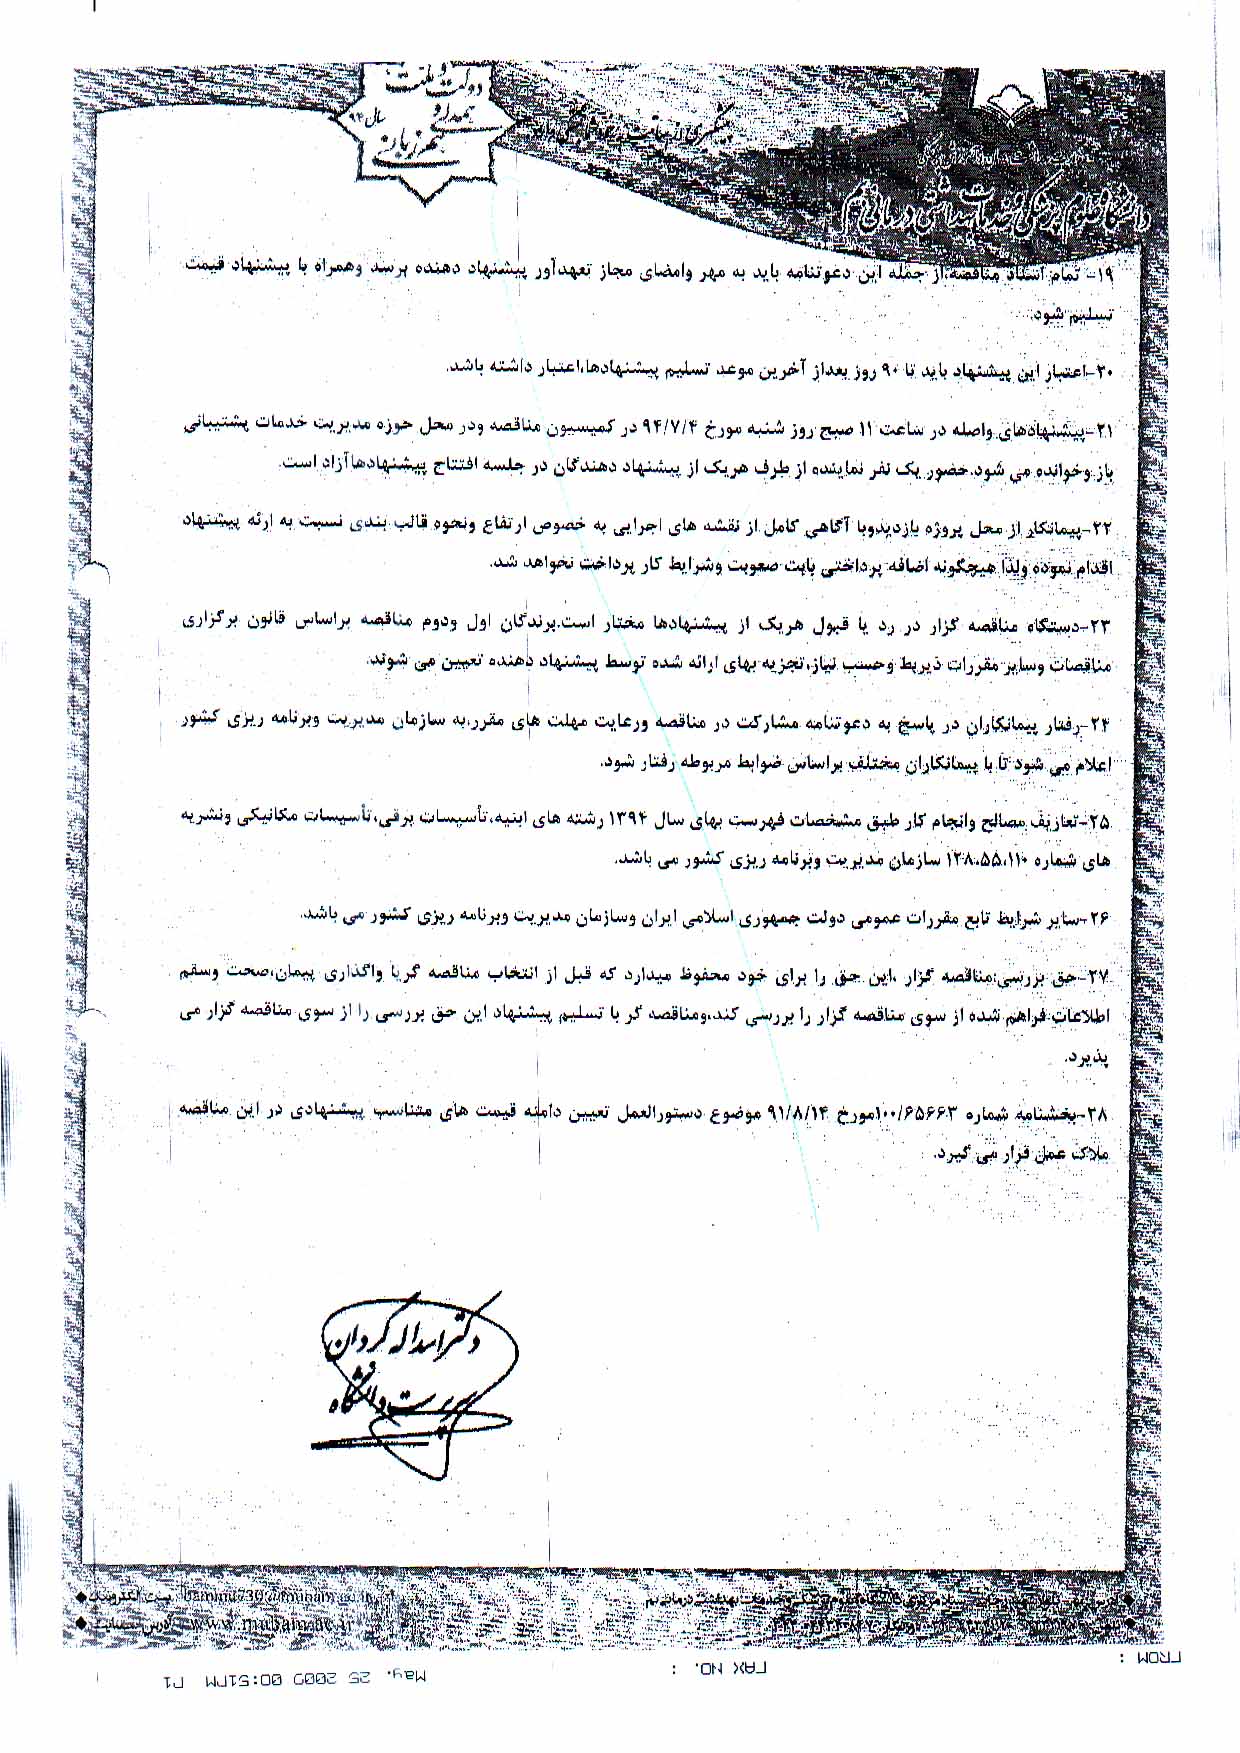 دولت و ملت
همدلی و
همزبانی
سال ۹۴
دانشگاه علوم پزشکی و خدمات بهداشتی درمانی بم
۱۹- تمام اسناد مناقصه،از جمله این دعوتنامه باید به مهر وامضای مجاز تعهدآور پیشنهاد دهنده برسد وهمراه با پیشنهاد قیمت
تسلیم شود.
۲۰-اعتبار این پیشنهاد باید تا ۹۰ روز بعداز آخرین موعد تسلیم پیشنهادها،اعتبار داشته باشد.
۲۱-پیشنهادهای واصله در ساعت ۱۱ صبح روز شنبه مورخ ۹۴/۷/۴ در کمیسیون مناقصه ودر محل حوزه مدیریت خدمات پشتیبانی
باز وخوانده می شود.حضور یک نفر نماینده از طرف هریک از پیشنهاد دهندگان در جلسه افتتاح پیشنهادها آزاد است.
۲۲-پیمانکار از محل پروژه بازدیدوبا آگاهی کامل از نقشه های اجرایی به خصوص ارتفاع ونحوه قالب بندی نسبت به ارئه پیشنهاد
اقدام نموده ولذا هیچگونه اضافه پرداختی بابت صعوبت وشرایط کار پرداخت نخواهد شد.
۲۳-دستگاه مناقصه گزار در رد یا قبول هریک از پیشنهادها مختار است.برندگان اول ودوم مناقصه براساس قانون برگزاری
مناقصات وسایر مقررات ذیربط وحسب نیاز،تجزیه بهای ارائه شده توسط پیشنهاد دهنده تعیین می شوند.
۲۴-رفتار پیمانکاران در پاسخ به دعوتنامه مشارکت در مناقصه ورعایت مهلت های مقرر،به سازمان مدیریت وبرنامه ریزی کشور
اعلام می شود تا با پیمانکاران مختلف براساس ضوابط مربوطه رفتار شود.
۲۵-تعاریف مصالح وانجام کار طبق مشخصات فهرست بهای سال ۱۳۹۴ رشته های ابنیه،تأسیسات برقی،تأسیسات مکانیکی ونشریه
های شماره ۱۲۸،۵۵،۱۱۰ سازمان مدیریت وبرنامه ریزی کشور می باشد.
۲۶-سایر شرایط تابع مقررات عمومی دولت جمهوری اسلامی ایران وسازمان مدیریت وبرنامه ریزی کشور می باشد.
۲۷-حق بررسی:مناقصه گزار ،این حق را برای خود محفوظ میدارد که قبل از انتخاب مناقصه گریا واگذاری پیمان،صحت وسقم
اطلاعات فراهم شده از سوی مناقصه گزار را بررسی کند،ومناقصه گر با تسلیم پیشنهاد این حق بررسی را از سوی مناقصه گزار می
پذیرد.
۲۸-بخشنامه شماره ۱۰۰/۶۵۶۶۳مورخ ۹۱/۸/۱۴ موضوع دستورالعمل تعیین دامنه قیمت های متناسب پیشنهادی در این مناقصه
ملاک عمل قرار می گیرد.
دکتر اسداله گردان
سرپرست دانشگاه
پست الکترونیک
FROM :
FAX NO. :
May. 25 2009 00:51PM P1